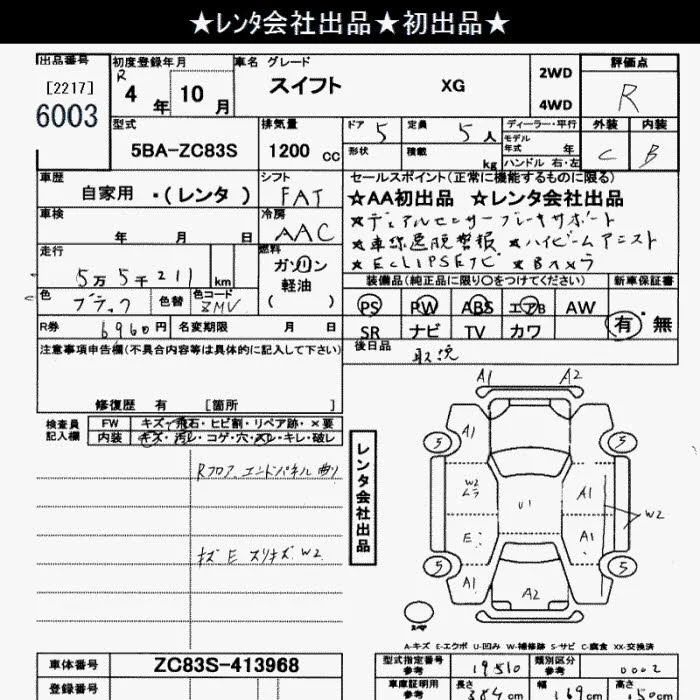 ★レンタ会社出品★初出品★
出品番号 初度登録年月 車名 グレード 評価点
[2217] R 4年 10月 スイフト XG 2WD R
6003 4WD
型式 排気量 ドア 5 定員 5人 ディーラー・平行 外装 内装
5BA-ZC83S 1200 cc 形状 積載 kg モデル年式 年 C B
ハンドル 右・左
車歴 シフト セールスポイント(正常に機能するものに限る)
自家用 ・(レンタ ) FAT ★AA初出品 ★レンタ会社出品
車検 冷房 ★デュアルセンサーブレーキサポート
年 月 日 AAC ★車線逸脱警報 ★ハイビームアシスト
走行 燃料 ★ECLIPSEナビ ★Bカメラ
5万5千211 km ガソリン 装備品(純正品に限り○をつけてください) 新車保証書
色 色替 色コード 軽油
ブラック ZMV ( ) PS PW ABS エアB AW 有・無
R券 6960円 名変期限 月 日 SR ナビ TV カワ
注意事項申告欄(不具合内容等は具体的に記入して下さい) 後日品 取説
修復歴 有 [箇所 ]
検査員 FW キズ・飛石・ヒビ割・リペア跡・×要
記入欄 内装 キズ・汚レ・コゲ・穴・スレ・キレ・破レ
Rフロア、エンドパネル曲り
キズ E スリキズ W2
レンタ会社出品
A1 A2
5 A1 5
W2 ムラ U1 A1 W2
E A1
5 A1 A2 5
A-キズ E-エクボ U-凹み W-補修跡 S-サビ C-腐食 XX-交換済
車体番号 ZC83S-413968 型式指定番号 参考 19510 類別区分 参考 0002
登録番号 車庫証明用 参考 長さ 384 cm 幅 169 cm 高さ 150 cm